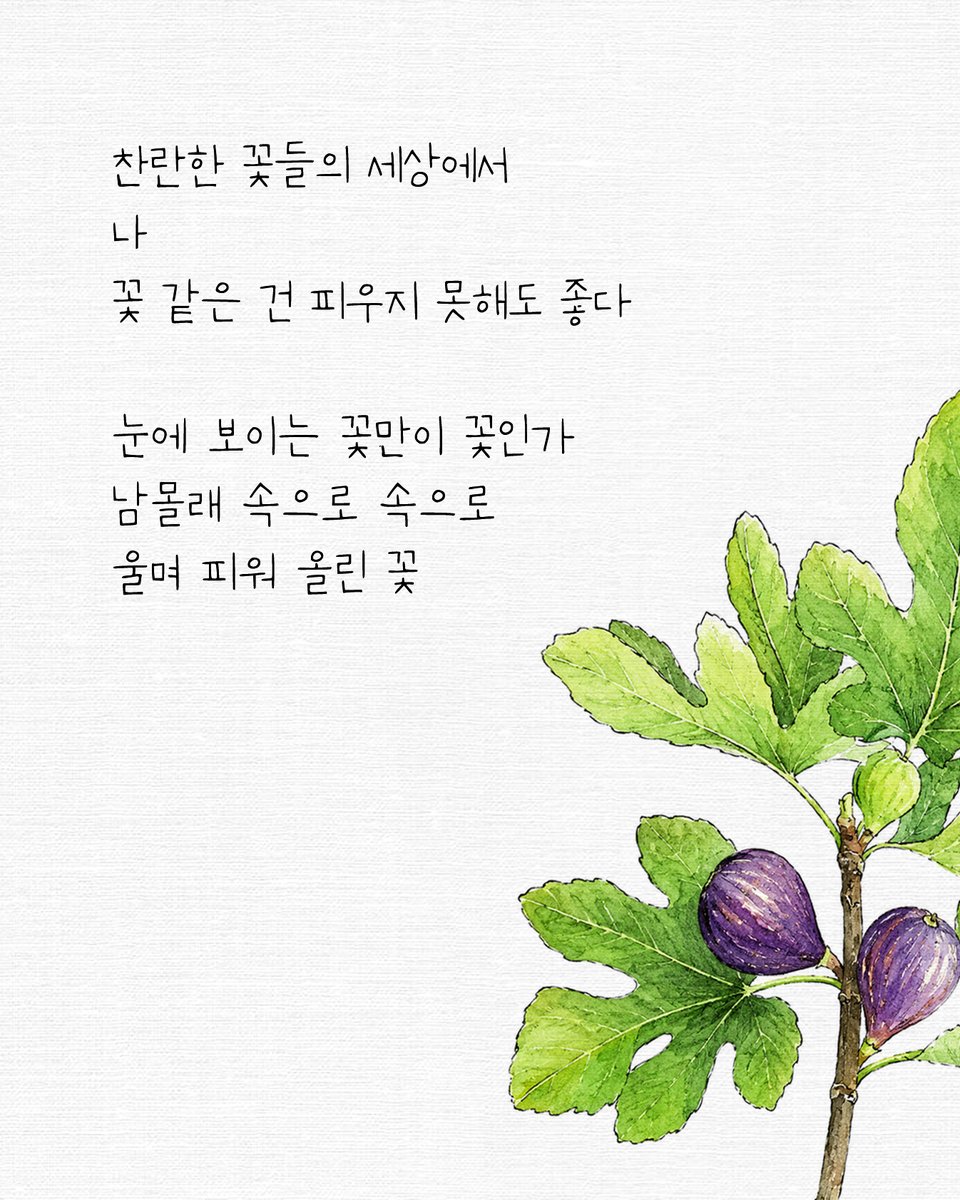 찬란한 꽃들의 세상에서
나
꽃 같은 건 피우지 못해도 좋다
눈에 보이는 꽃만이 꽃인가
남몰래 속으로 속으로
울며 피워 올린 꽃